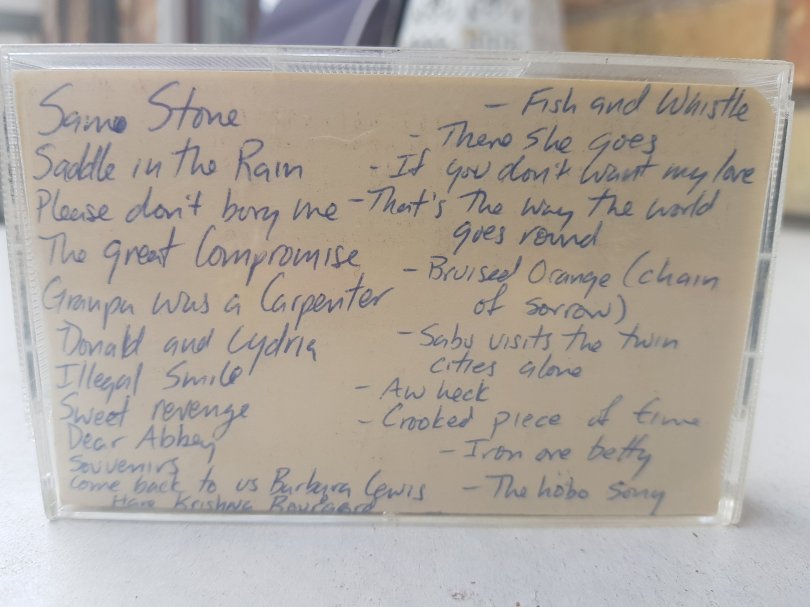 Sam Stone
Saddle in the Rain
Please don't bury me
The great Compromise
Granpa was a Carpenter
Donald and Lydria
Illegal Smile
Sweet revenge
Dear Abbey
Souvenirs
come back to us Barbara Lewis
Hare Krishna Beauregard
- Fish and Whistle
- There She goes
- If you don't want my love
- That's The way The world
goes round
- Bruised Orange (chain
of sorrow)
- Sabu visits the twin
cities alone
- Aw heck
- Crooked piece of time
- Iron ore betty
- The hobo song